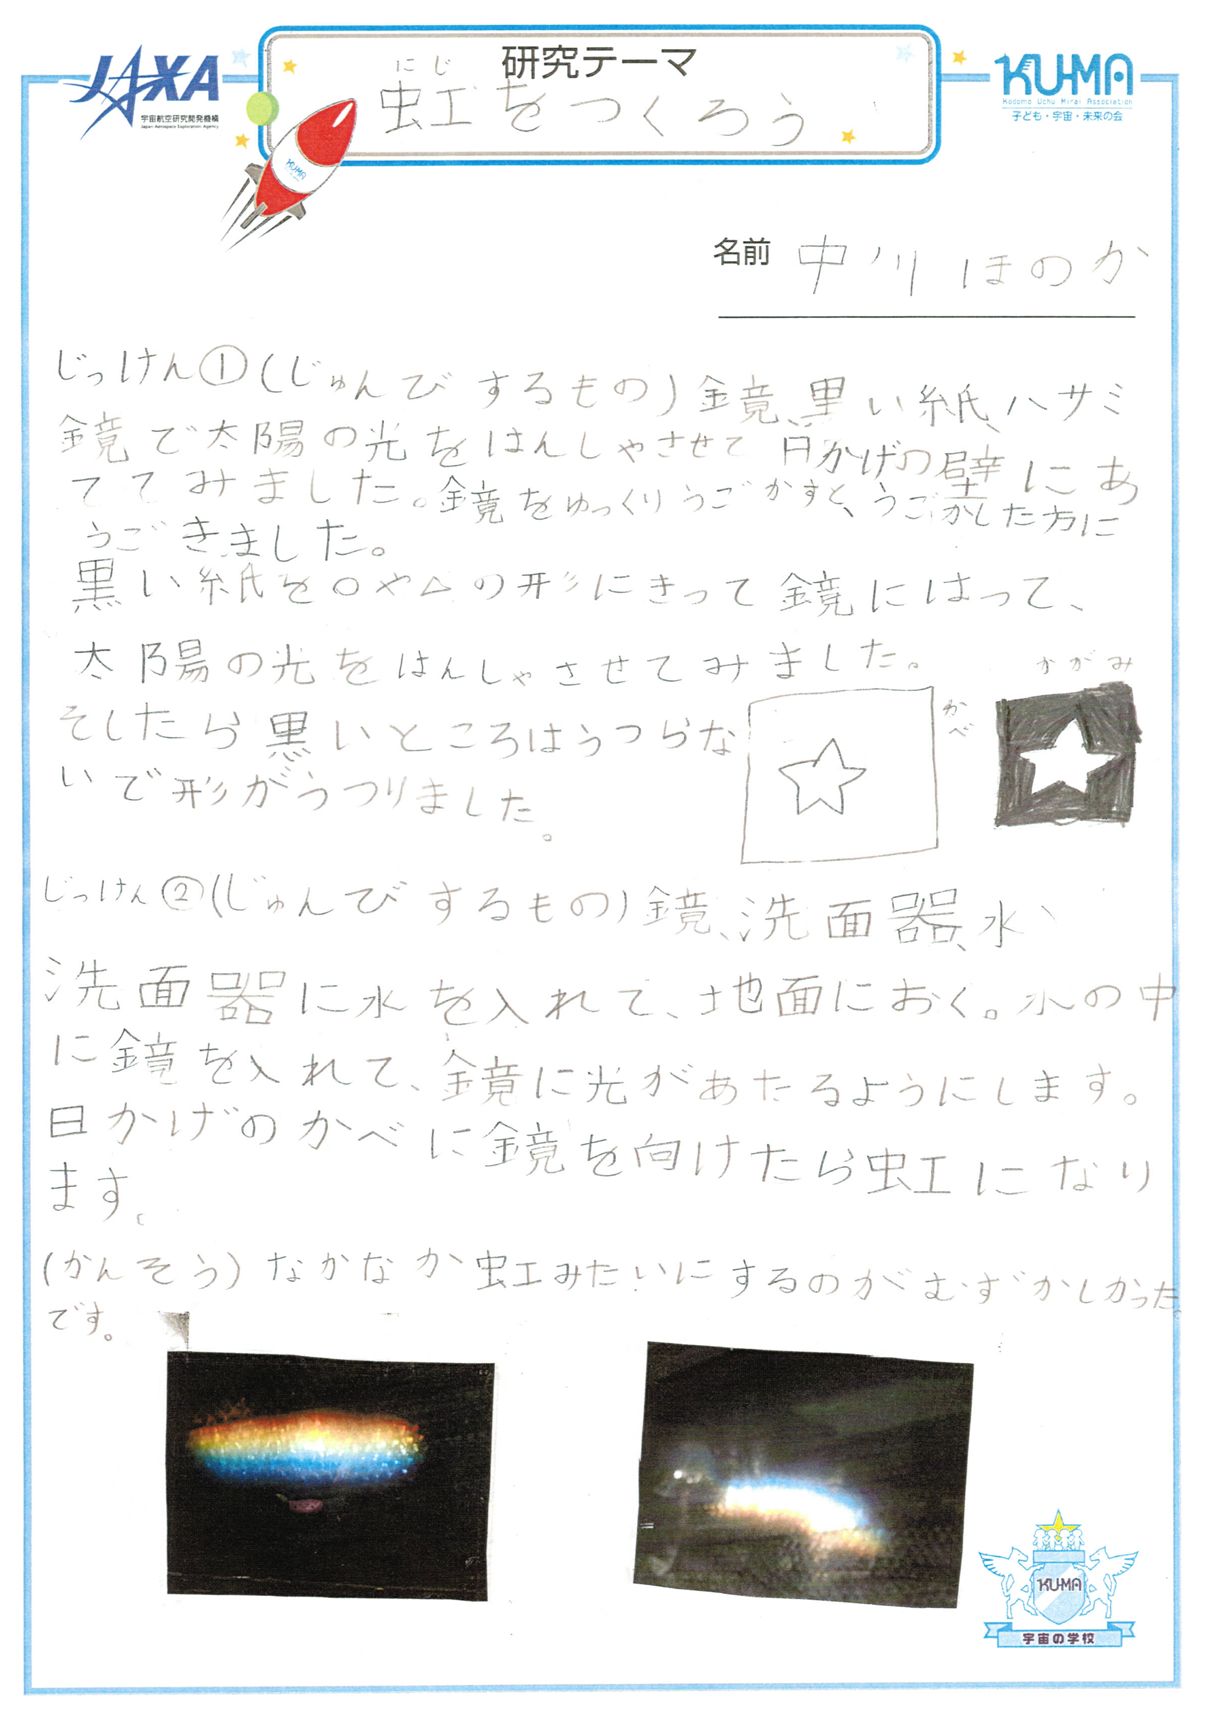 JAXA
宇宙航空研究開発機構
Japan Aerospace Exploration Agency
研究テーマ
にじ
虹をつくろう
KUMA
Kodomo Uchu Mirai Association
子ども・宇宙・未来の会
KUMA
名前 中川ほのか
じっけん①(じゅんびするもの)鏡、黒い紙、ハサミ
鏡で太陽の光をはんしゃさせて日かげの壁にあ
ててみました。鏡をゆっくりうごかすと、うごかした方に
うごきました。
黒い紙を○や△の形にきって鏡にはって、
太陽の光をはんしゃさせてみました。
そしたら黒いところはうつらな
いで形がうつりました。
かべ
かがみ
じっけん②(じゅんびするもの)鏡、洗面器、水
洗面器に水を入れて、地面におく。水の中
に鏡を入れて、鏡に光があたるようにします。
日かげのかべに鏡を向けたら虹になり
ます。
(かんそう)なかなか虹みたいにするのがむずかしかった
です。
KUMA
宇宙の学校